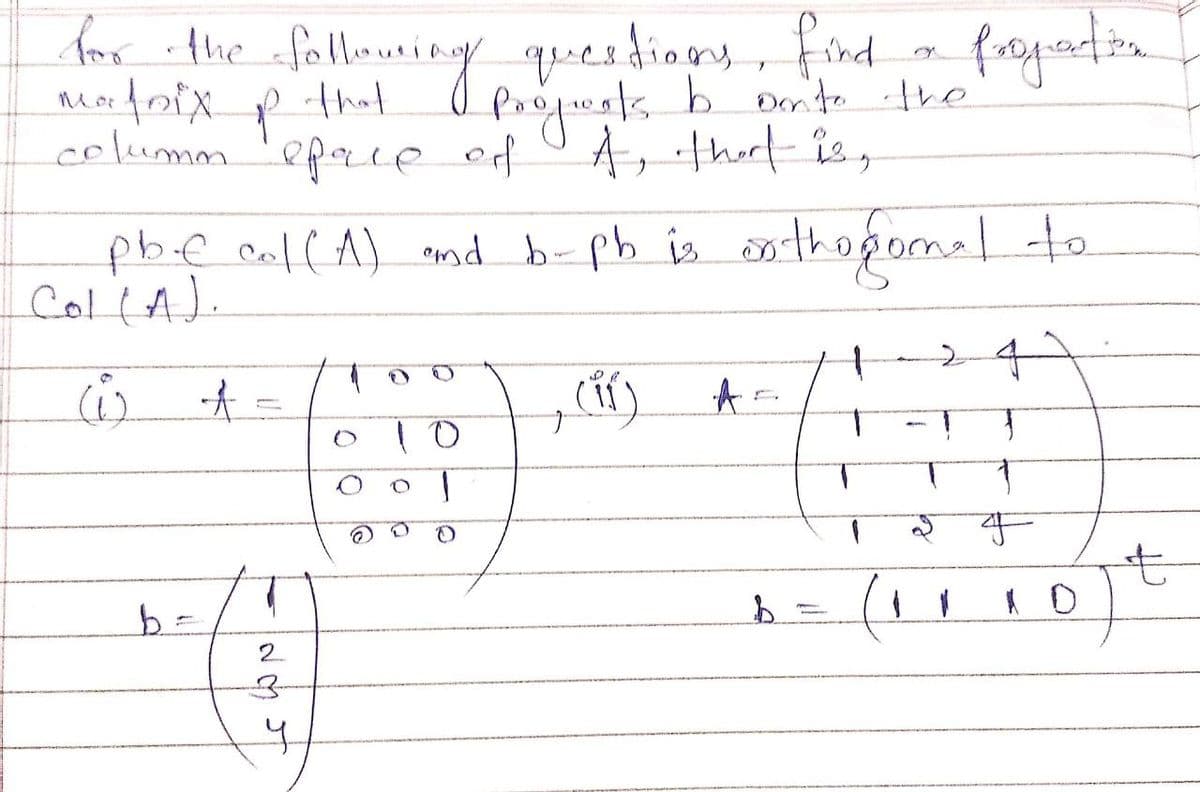 for the following questions, find a projection
matrix p that projects b onto the
column space of A, that is,
pb ∈ col(A) and b-pb is orthogonal to
Col (A).
(i) A = (1 0 0 , (ii) A = (1 -2 4
0 1 0 1 -1 1
0 0 1 1 1 1
0 0 0) 1 2 4)
b = (1 b = (1 1 1 0)t
2
3
4)